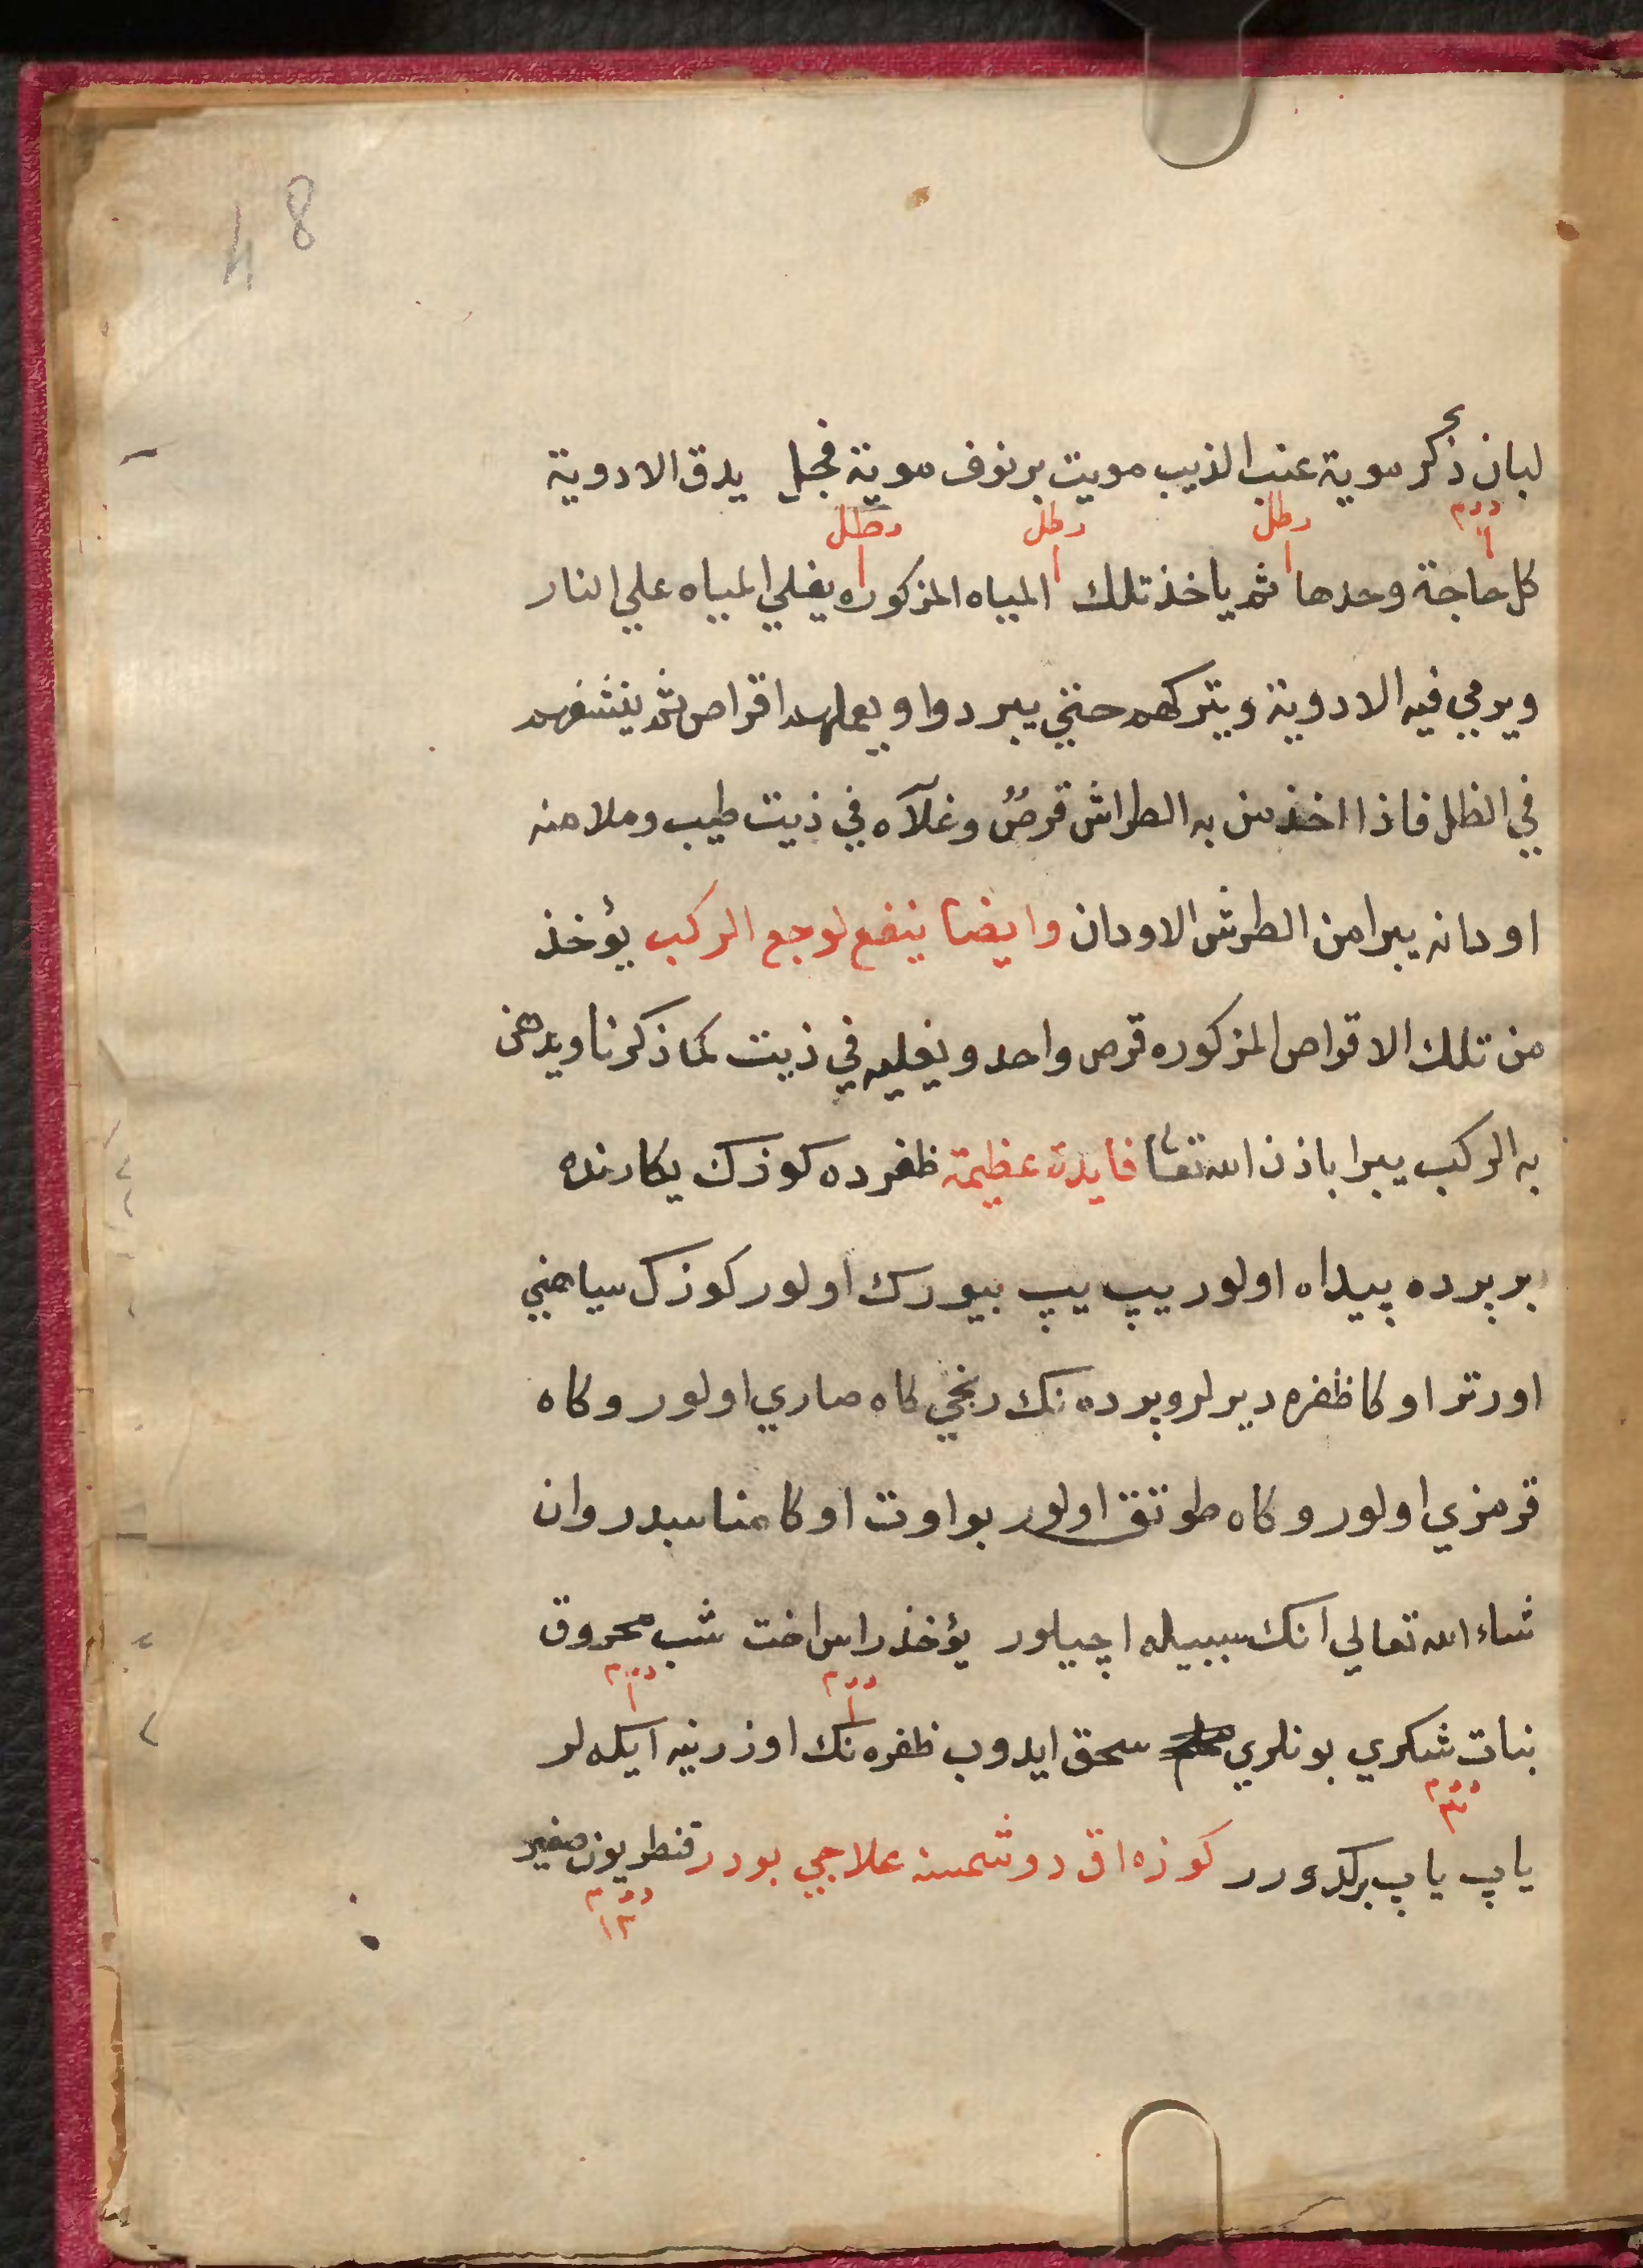 48
لبان ذكر موية عنب الذيب مويت برنوف موية فجل يدق الادوية
درم ١ رطل ١ رطل ١ رطل ١
كل حاجة وحدها ثم ياخذ تلك المياه المزكوره يغلي المياه علي النار
ويرمي فيه الادوية ويتركهم حتي يبردوا ويعملهم اقراص ثم ينشفهم
في الظل فاذا اخذ من به الطراش قرصٌ وغلآه في ذيت طيب وملا منه
اودانه يبرا من الطرش الاودان وايضا ينفع لوجع الركب يؤخذ
من تلك الاقراص المزكوره قرص واحد ويغليه في ذيت كما ذكرنا ويدهن
به الركب يبرا باذن الله تعا فايدة عظيمة ظفرده كوزك يكارنده
بر پرده پيداه اولور يپ يپ بيورك اولور كوزك سياهني
اورتر اوكا ظفره ديرلر وپرده نك رنجي كاه صاري اولور وكاه
قرمزي اولور وكاه طوتق اولور بو اوت اوكا مناسبدر وان
شاء الله تعالي انك سببيله اچيلور يؤخذ راس اخت شب محروق
درم ١ درم ١
نبات شكري بونلري سحق ايدوب ظفره نك اوزرنيه ايكه لر
درم ٣
ياپ ياپ بركدورر كوزه اق دوشمسنه علاجي بودر قنطريون صغير
درم ١٢